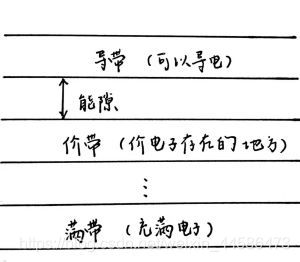 导带（可以导电）
能隙
价带（价电子存在的地方）
⋮
满带（充满电子）